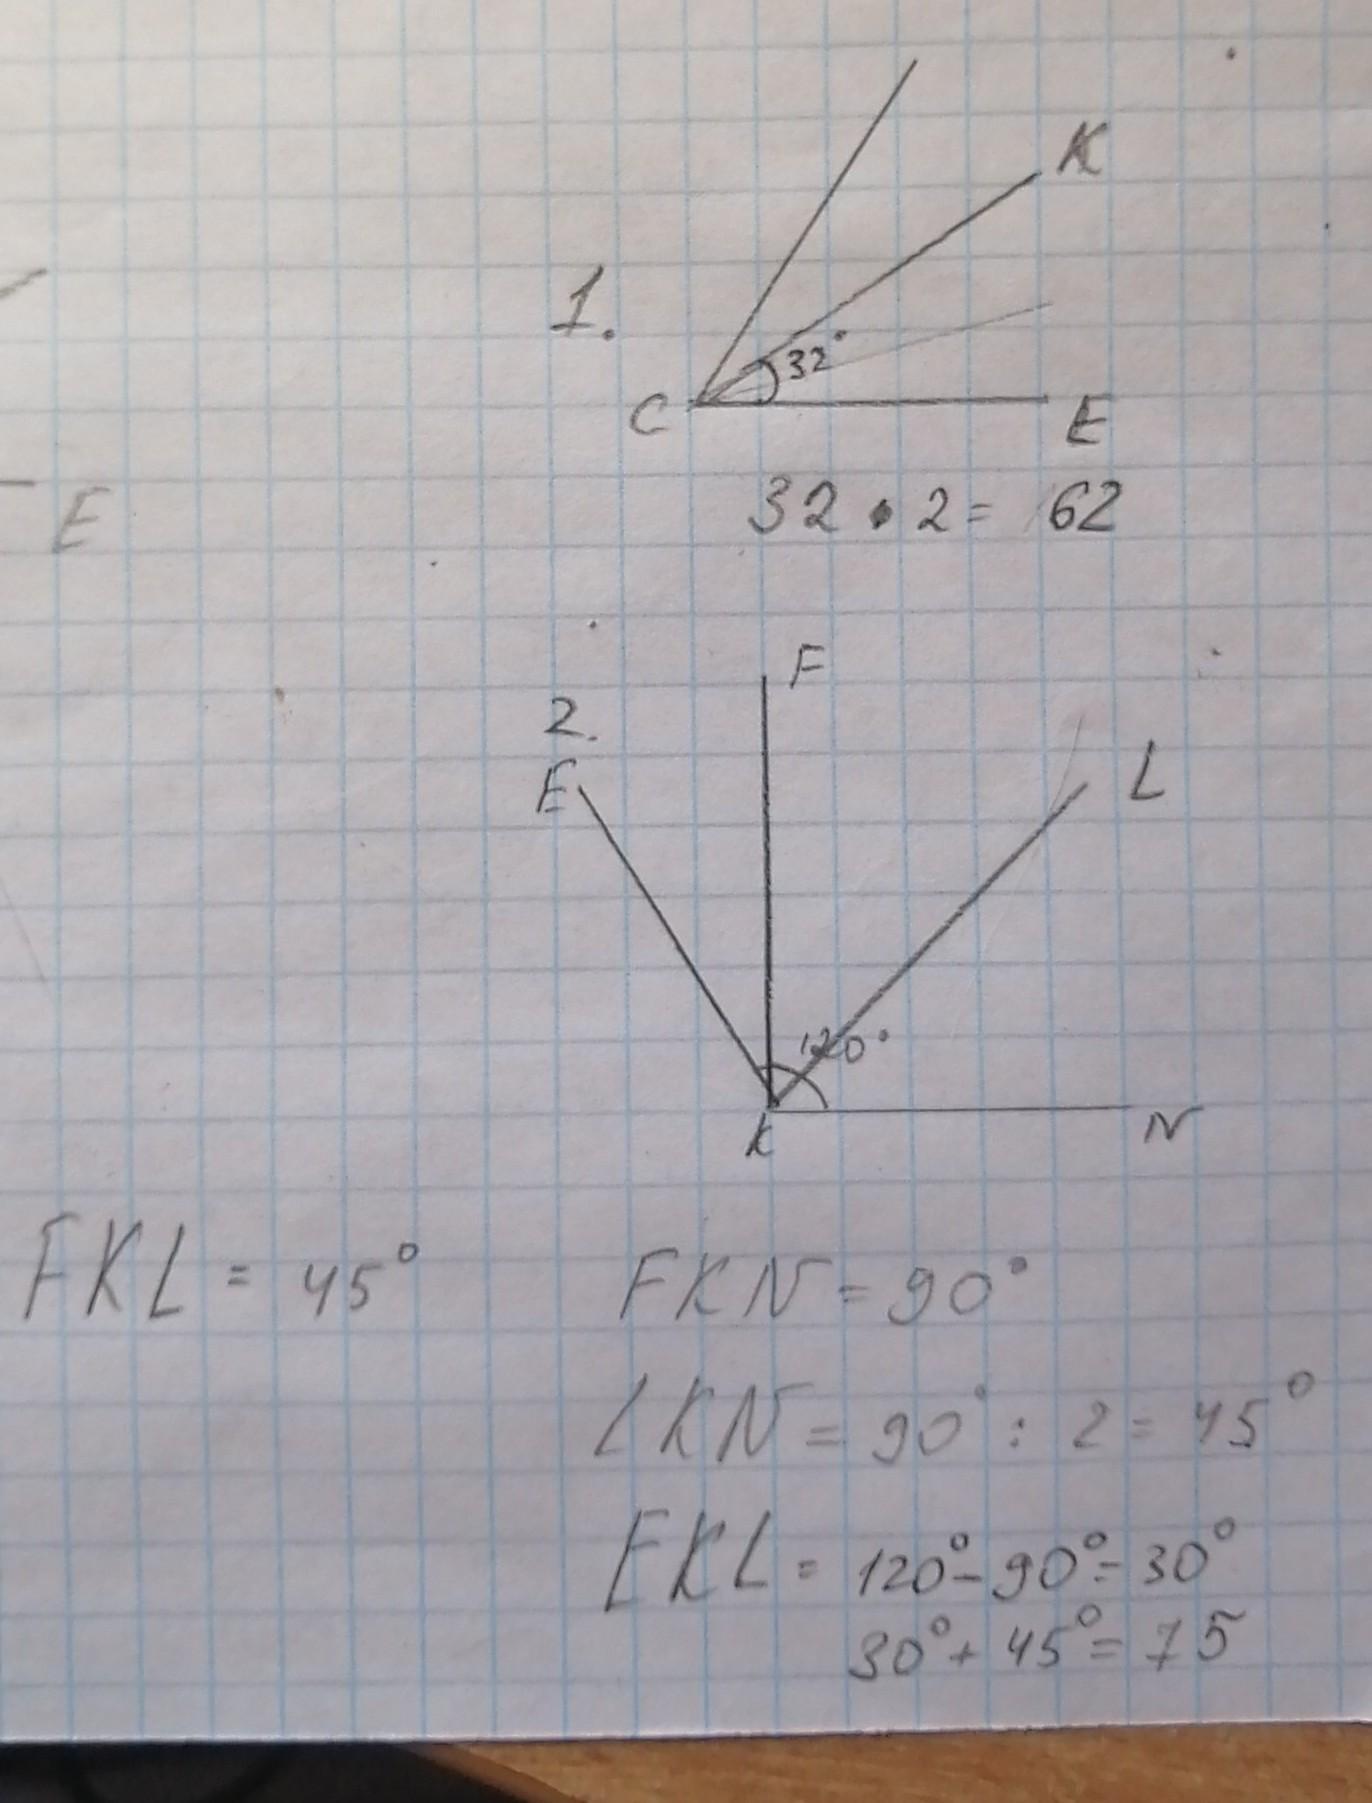 K
1.
32°
C
E
E
32 • 2 = 62
F
2.
L
E
120°
K
N
FKL = 45°
FKN = 90°
LKN = 90° : 2 = 45°
EKL = 120° - 90° = 30°
30° + 45° = 75